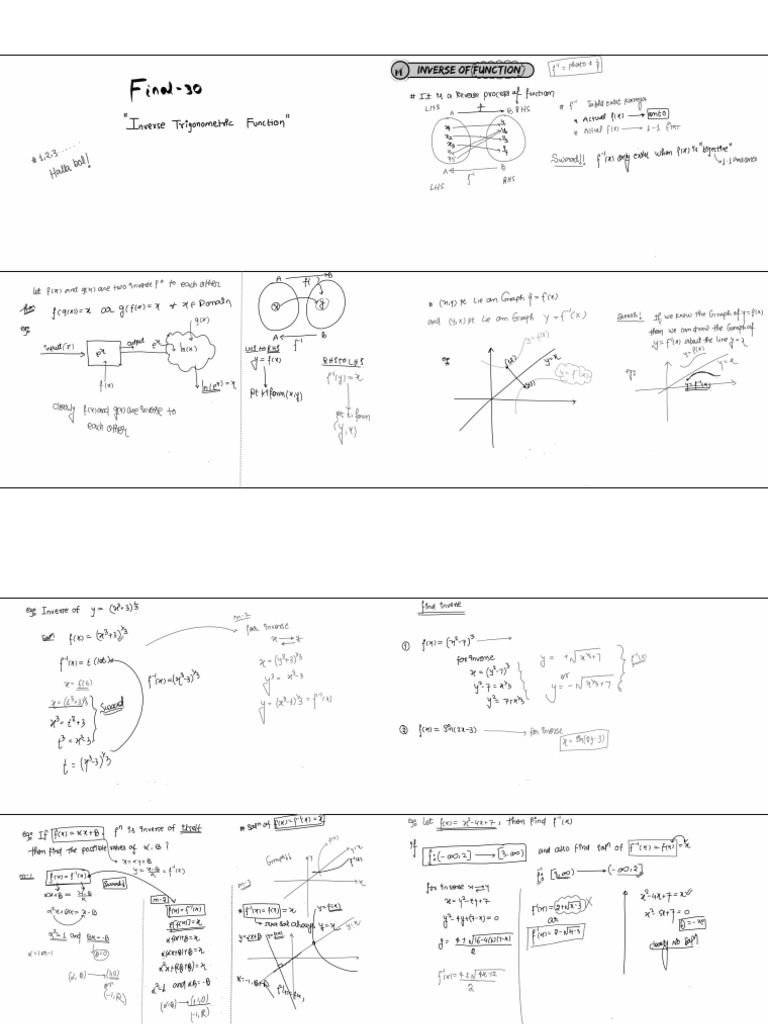 Final-30
"Inverse Trigonometric Function"
# 1,2,3...
Halla bol!
INVERSE OF FUNCTION
# It is a Reverse process of function
LHS
A
f
B RHS
A
f⁻¹
B
LHS
RHS
* Actual f(x) → onto
* Actual f(x) → 1-1
Swaad!! f⁻¹(x) only exist when f(x) is "bijective"
let f(x) and g(x) are two inverse fⁿ to each other
f(g(x))=x or g(f(x))=x ∀ x∈Domain
eg
input(x)
eˣ
output
eˣ
g(x)
ln(x)
f(x)
ln(eˣ)=x
clearly f(x) and g(x) are inverse to
each other
A
B
f()
x
y
A
f⁻¹
B
LHS to RHS
y=f(x)
pt is form (x,y)
RHS to LHS
f⁻¹(y)=x
pt is form
(y,x)
* (x,y) pt lie on Graph y=f(x)
and (y,x) pt lie on Graph y=f⁻¹(x)
eg
y=f(x)
y=x
y=f⁻¹(x)
If we know the Graph of y=f(x)
then we can draw the Graph of
y=f⁻¹(x) about the line y=x
eg:
y=f(x)
y=x
y=f⁻¹(x)
eg Inverse of y=(x³+3)^1/3
Solⁿ f(x)=(x³+3)^1/3
f⁻¹(x)=t (let)
x=f(t)
x=(t³+3)^1/3
x³=t³+3
t³=x³-3
t=(x³-3)^1/3
Swaad
f⁻¹(x)=(x³-3)^1/3
m-2
for inverse
x ⇌ y
x=(y³+3)^1/3
y³=x³-3
y=(x³-3)^1/3=f⁻¹(x)
find inverse
① f(x)=(x²-7)³
for inverse
x=(y²-7)³
y²-7=x^1/3
y²=7+x^1/3
y=+√(x^1/3+7)
or
y=-√(x^1/3+7)
f⁻¹(x)
③ f(x)=sin(2x-3) → for inverse
x=sin(2y-3)
eg If f(x)=αx+β, fⁿ is inverse of itself
then find the possible values of α,β?
m-1
f(x)=f⁻¹(x)
x=αy+β
αx+β=
α²x+αβ=x-β
α²=1 and
β=0
m-2
f(x)=f⁻¹(x)
f(f(x))=x
α²=1 and
* Solⁿ of f(x)=f⁻¹(x)=x
Graphs
* f⁻¹(x)=f(x)=x
y=f(x)
y=x
eg let f(x)=x²-4x+7, then find f⁻¹(x)
If f:(-∞,2] → [3,∞) and also find solⁿ of f⁻¹(x)=f(x)=x
[3,∞) → (-∞,2]
for inverse x⇌y
x=y²-4y+7
y²-4y+(7-x)=0
y=(4±√(16-4(1)(7-x)))/2
f⁻¹(x)=(4±√(4x-12))/2
f⁻¹(x)=2+√(x-3) ✗
or
f⁻¹(x)=2-√(x-3)
x²-4x+7=x
x²-5x+7=0
D=-ve
clearly no solⁿ